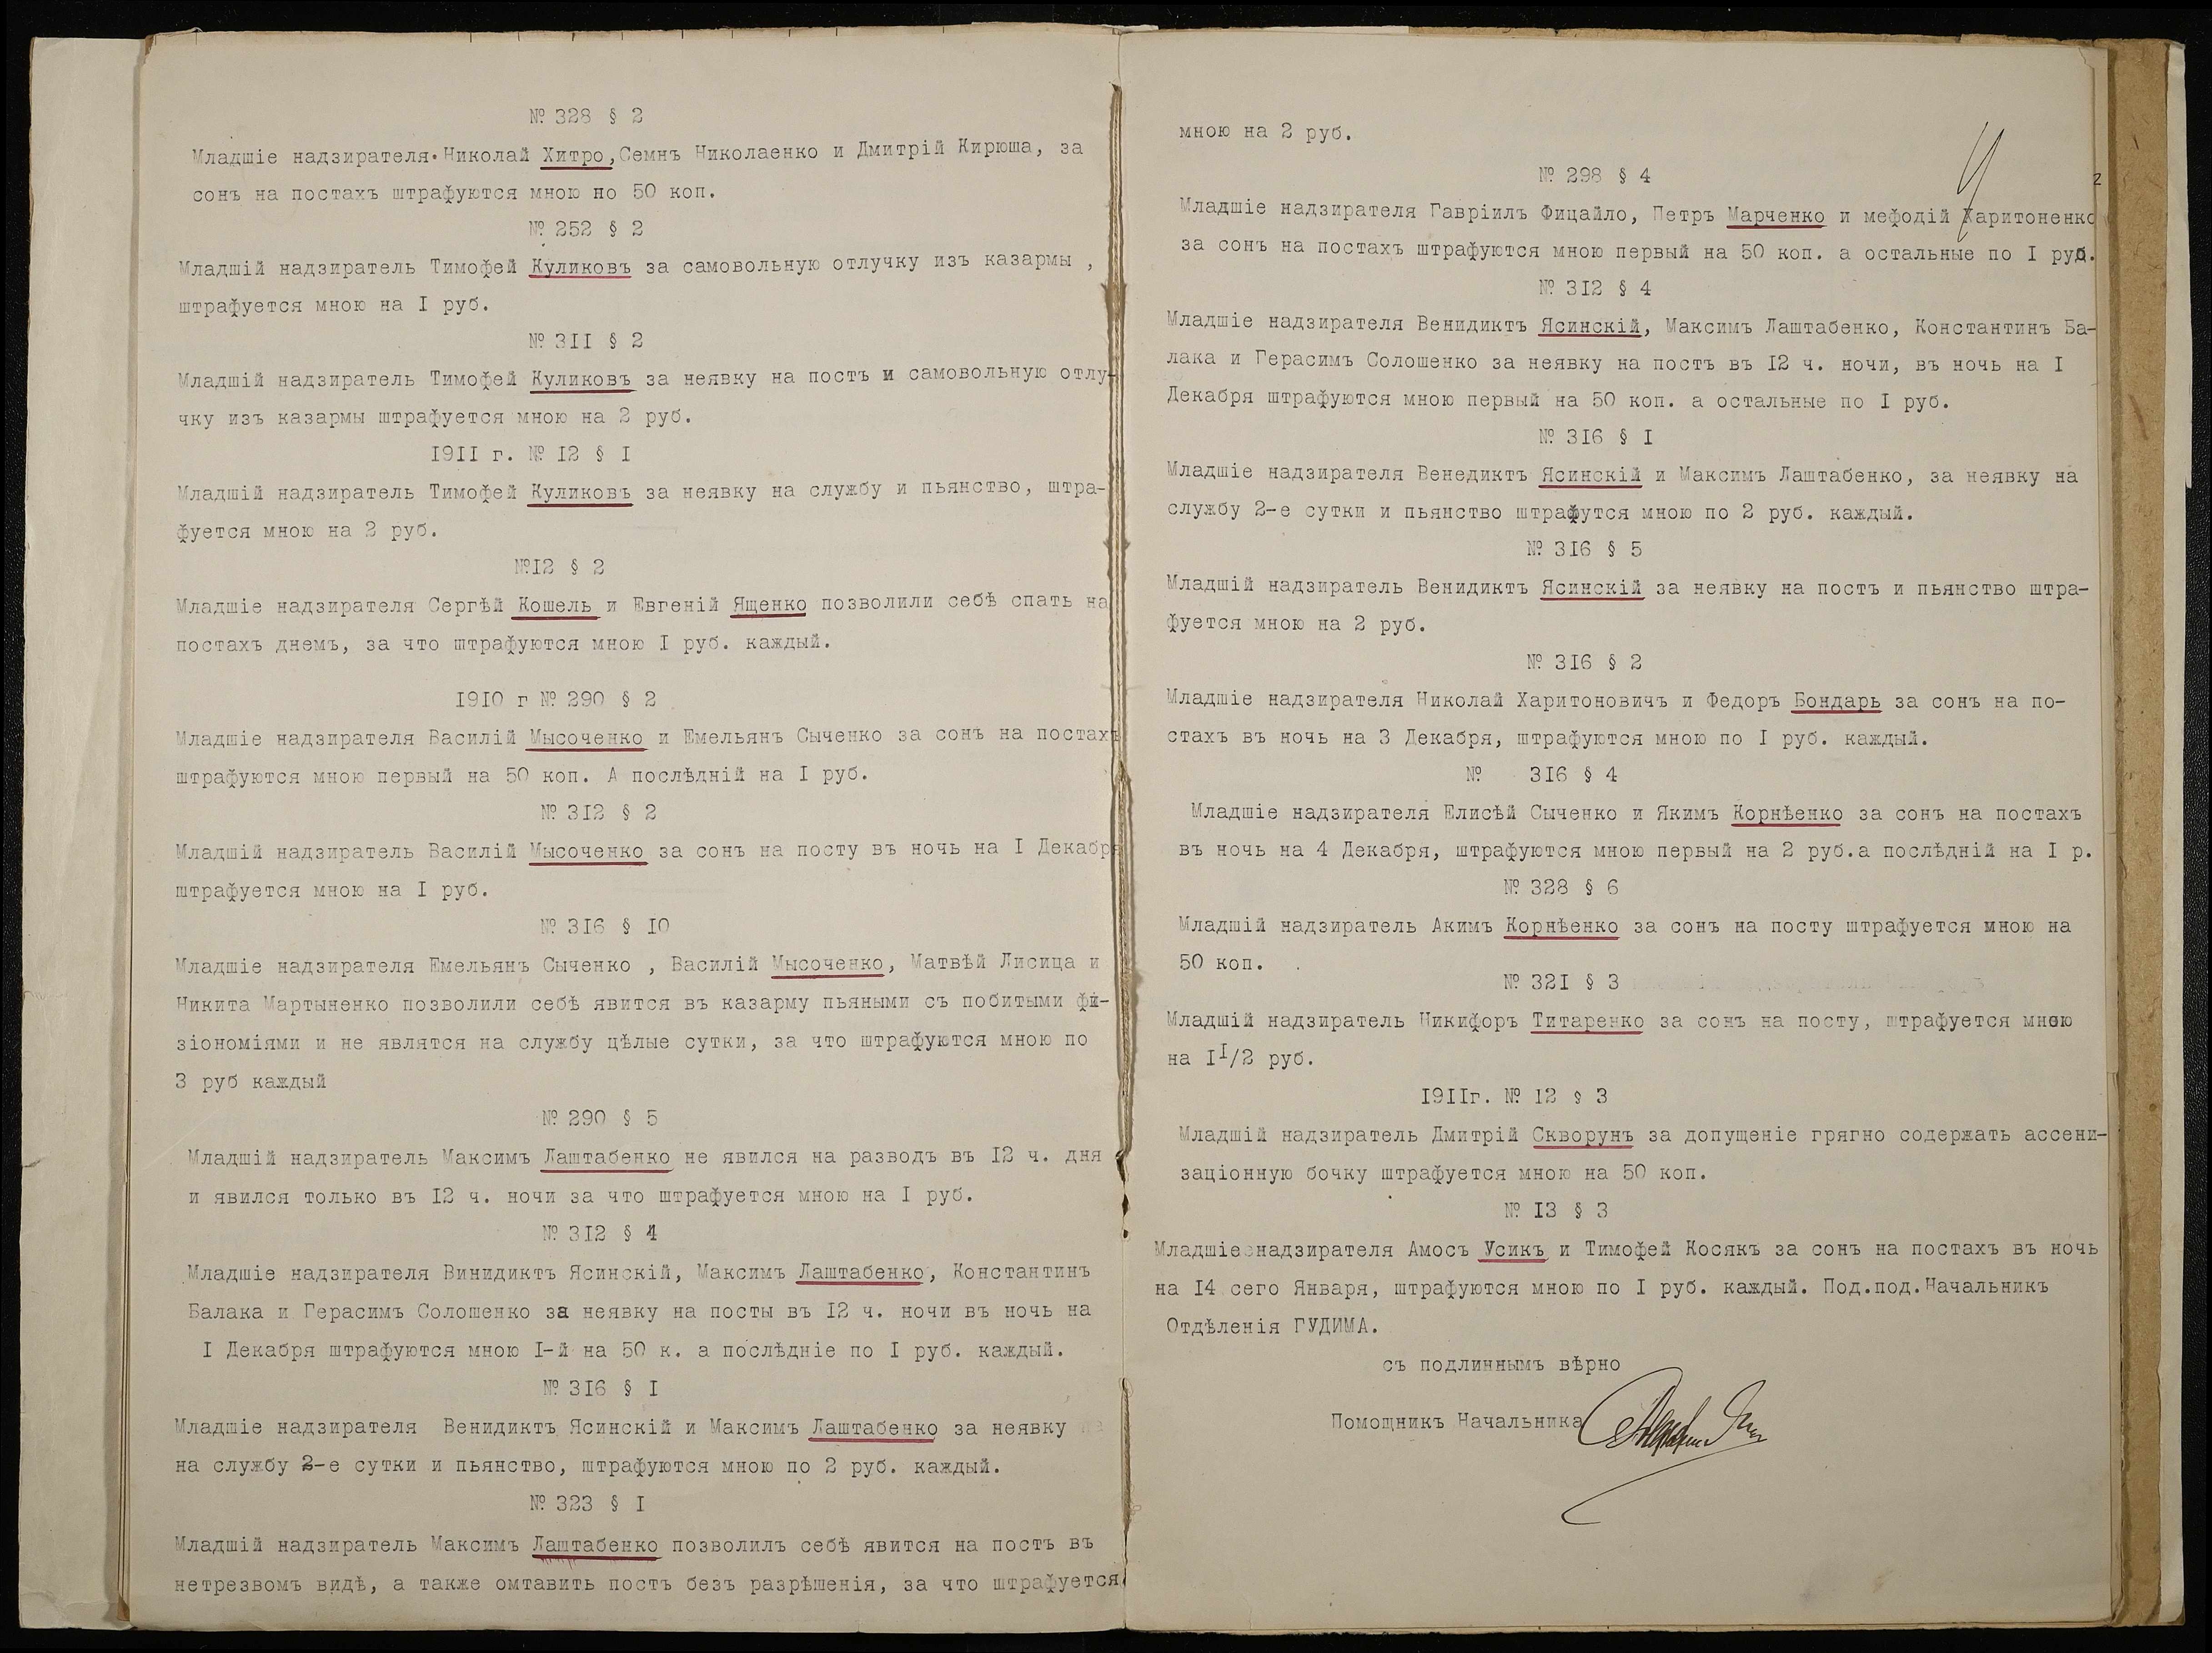 № 328 § 2
Младшіе надзирателя Николай Хитро,Семнъ Николаенко и Дмитрій Кирюша, за
сонъ на постахъ штрафуются мною но 50 коп.
№ 252 § 2
Младшій надзиратель Тимофей Куликовъ за самовольную отлучку изъ казармы ,
штрафуется мною на I руб.
№ 3II § 2
Младшій надзиратель Тимофей Куликовъ за неявку на постъ и самовольную отлу-
чку изъ казармы штрафуется мною на 2 руб.
I9II г. № I2 § I
Младшій надзиратель Тимофей Куликовъ за неявку на службу и пьянство, штра-
фуется мною на 2 руб.
№I2 § 2
Младшіе надзирателя Сергѣй Кошель и Евгеній Ященко позволили себѣ спать на
постахъ днемъ, за что штрафуются мною I руб. каждый.
I9IO г № 290 § 2
Младшіе надзирателя Василій Мысоченко и Емельянъ Сыченко за сонъ на постахъ
штрафуются мною первый на 50 коп. А послѣдній на I руб.
№ 3I2 § 2
Младшій надзиратель Василій Мысоченко за сонъ на посту въ ночь на I Декабря
штрафуется мною на I руб.
№ 3I6 § IO
Младшіе надзирателя Емельянъ Сыченко , Василій Мысоченко, Матвѣй Лисица и
Никита Мартыненко позволили себѣ явится въ казарму пьяными съ побитыми фи-
зіономіями и не являтся на службу цѣлые сутки, за что штрафуются мною по
3 руб каждый
№ 290 § 5
Младшій надзиратель Максимъ Лаштабенко не явился на разводъ въ I2 ч. дня
и явился только въ I2 ч. ночи за что штрафуется мною на I руб.
№ 3I2 § 4
Младшіе надзирателя Винидиктъ Ясинскій, Максимъ Лаштабенко, Константинъ
Балака и Герасимъ Солошенко за неявку на посты въ I2 ч. ночи въ ночь на
I Декабря штрафуются мною I-й на 50 к. а послѣдніе по I руб. каждый.
№ 3I6 § I
Младшіе надзирателя Венидиктъ Ясинскій и Максимъ Лаштабенко за неявку
на службу 2-е сутки и пьянство, штрафуются мною по 2 руб. каждый.
№ 323 § I
Младшій надзиратель Максимъ Лаштабенко позволилъ себѣ явится на постъ въ
нетрезвомъ видѣ, а также омтавить постъ безъ разрѣшенія, за что штрафуется
мною на 2 руб.
№ 298 § 4
2
Младшіе надзирателя Гавріилъ Фицайло, Петръ Марченко и мефодій Харитоненко
за сонъ на постахъ штрафуются мною первый на 50 коп. а остальные по I руб.
№ 3I2 § 4
Младшіе надзирателя Венидиктъ Ясинскій, Максимъ Лаштабенко, Константинъ Ба-
лака и Герасимъ Солошенко за неявку на постъ въ I2 ч. ночи, въ ночь на I
Декабря штрафуются мною первый на 50 коп. а остальные по I руб.
№ 3I6 § I
Младшіе надзирателя Венедиктъ Ясинскій и Максимъ Лаштабенко, за неявку на
службу 2-е сутки и пьянство штрафутся мною по 2 руб. каждый.
№ 3I6 § 5
Младшій надзиратель Венидиктъ Ясинскій за неявку на постъ и пьянство штра-
фуется мною на 2 руб.
№ 3I6 § 2
Младшіе надзирателя Николай Харитоновичъ и Федоръ Бондарь за сонъ на по-
стахъ въ ночь на 3 Декабря, штрафуются мною по I руб. каждый.
№ 3I6 § 4
Младшіе надзирателя Елисѣй Сыченко и Якимъ Корнѣенко за сонъ на постахъ
въ ночь на 4 Декабря, штрафуются мною первый на 2 руб.а послѣдній на I р.
№ 328 § 6
Младшій надзиратель Акимъ Корнѣенко за сонъ на посту штрафуется мною на
50 коп.
№ 32I § 3
Младшій надзиратель Никифоръ Титаренко за сонъ на посту, штрафуется мною
на I I/2 руб.
I9IIг. № I2 § 3
Младшій надзиратель Дмитрій Скворунъ за допущеніе грягно содержать ассени-
заціонную бочку штрафуется мною на 50 коп.
№ I3 § 3
Младшіе надзирателя Амосъ Усикъ и Тимофей Косякъ за сонъ на постахъ въ ночь
на I4 сего Января, штрафуются мною по I руб. каждый. Под.под.Начальникъ
Отдѣленія ГУДИМА.
съ подлиннымъ вѣрно
Помощникъ Начальника